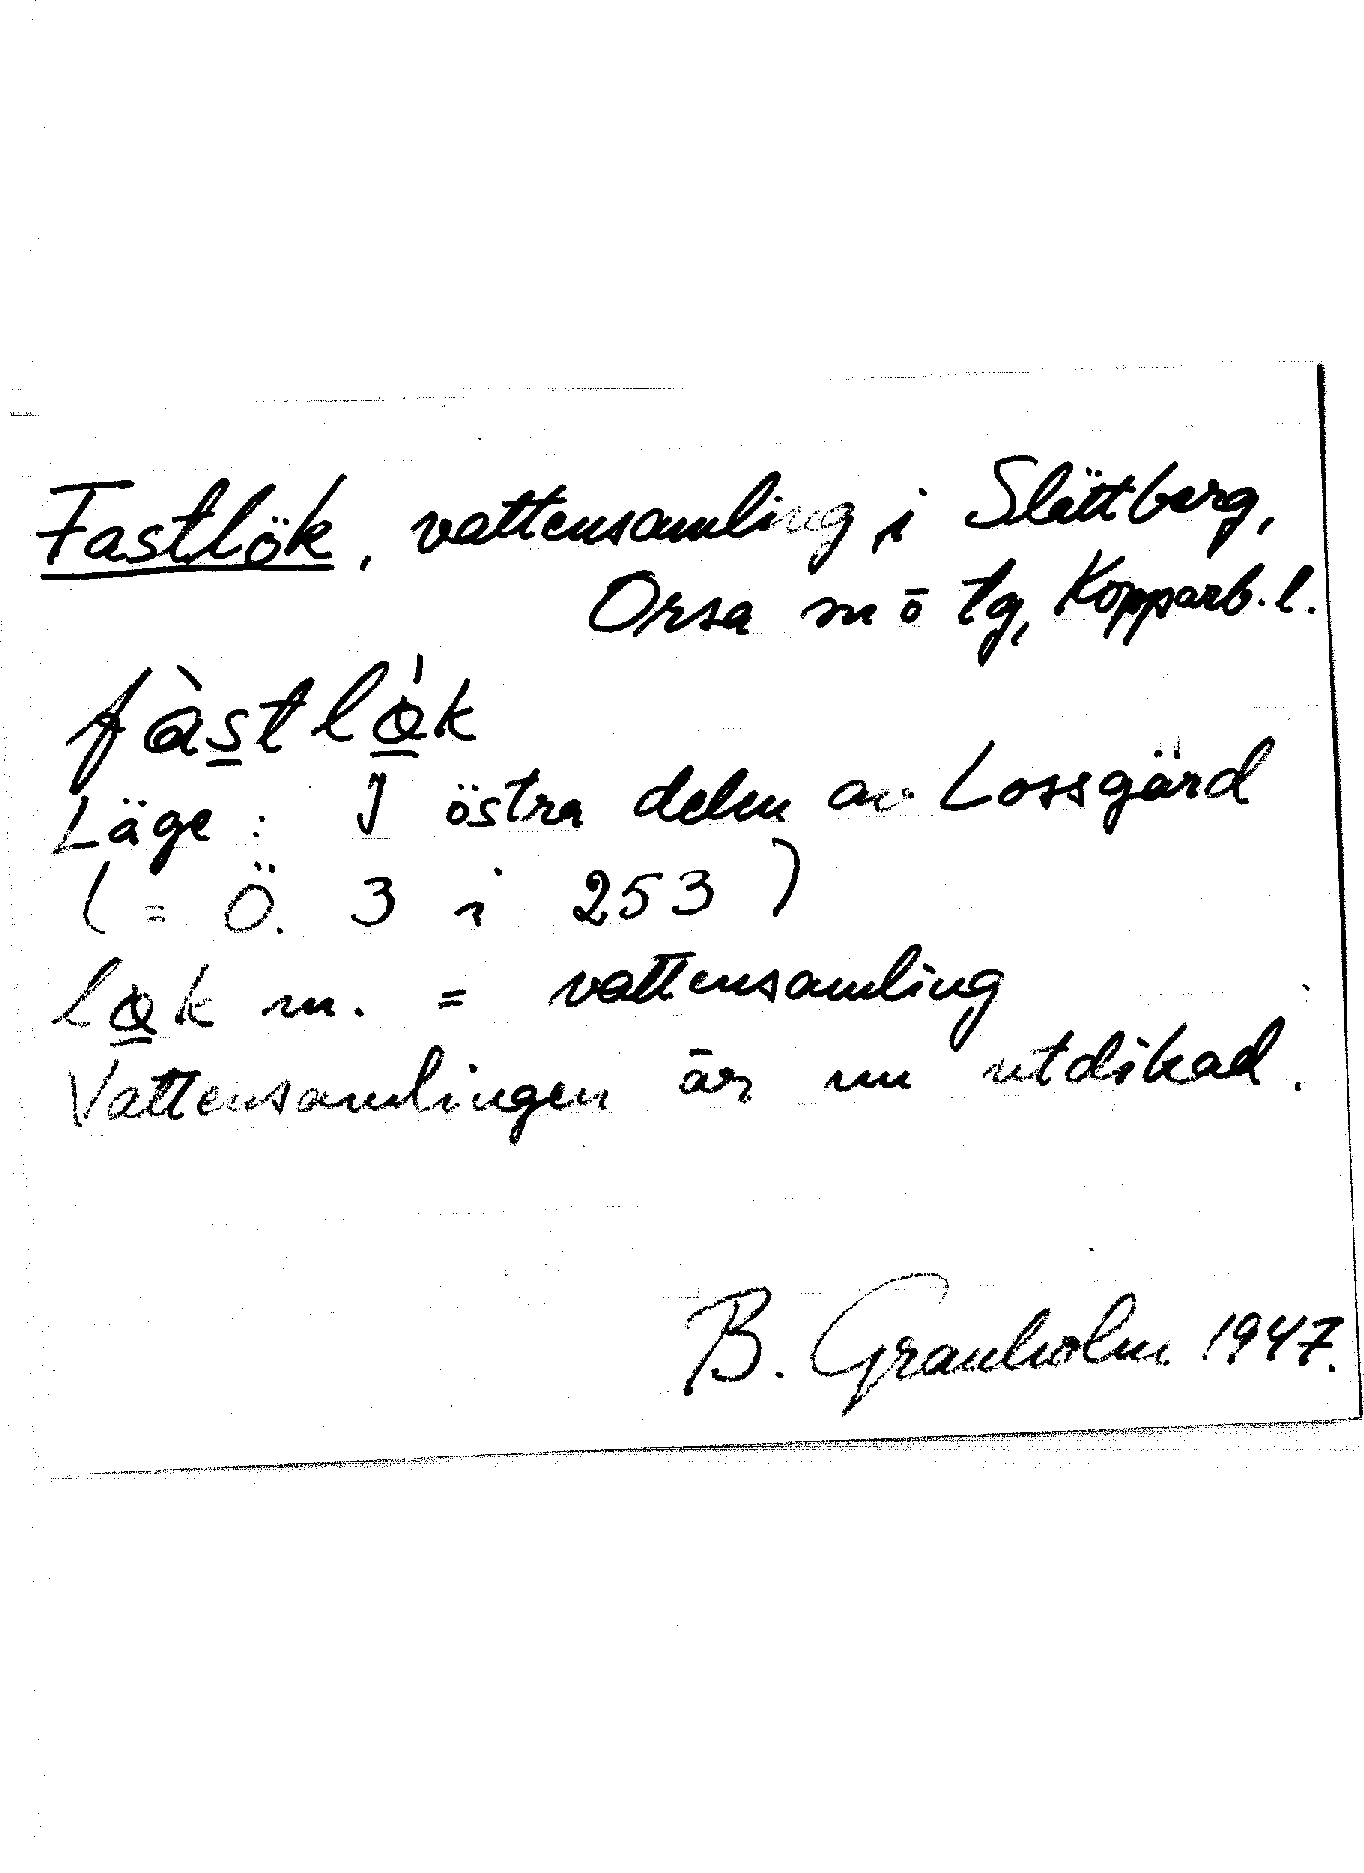 Fastlök, vattensamling i Slättberg,
Orsa sn ö tg, Kopparb. l.
fàstlǫ̀k
Läge: I östra delen av Lossgärd
(= Ö. 3 i 253)
lǫk m. = vattensamling
Vattensamlingen är nu utdikad.
B. Granholm 1947.